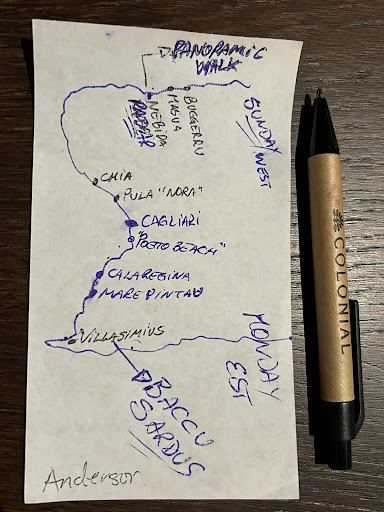 PANORAMIC
WALK
BUGGERRU
MASUA
NEBIDA
SUNDAY
WEST
CHIA
PULA "NORA"
CAGLIARI
"POETTO BEACH"
CALAREGINA
MARE PINTAU
VILLASIMIUS
MONDAY
EST
BACCU
SARDUS
Anderson
COLONIAL